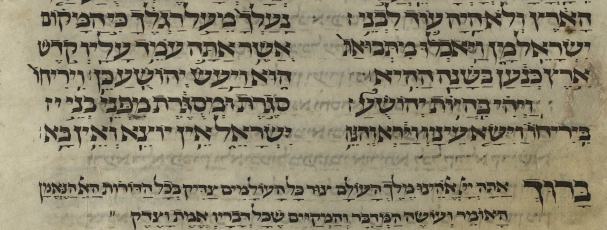 הארץ ולא היה עוד לבני י
ישראל מן ויאכלו מתבואת
ארץ כנען בשנה ההיא
ויהי בהיות יהושע
ביריחו וישא עיניו וירא והנה
נעלך מעל רגלך כי המקום
אשר אתה עמד עליו קדש
הוא ויעש יהושע כן ויריחו
סגרת ומסגרת מפני בני יש
ישראל אין יוצא ואין בא
ברוך אתה ייי אלהינו מלך העולם צור כל העולמים צדיק בכל הדורות האל הנאמן
האומר ועושה המדבר והמקיים שכל דבריו אמת וצדק